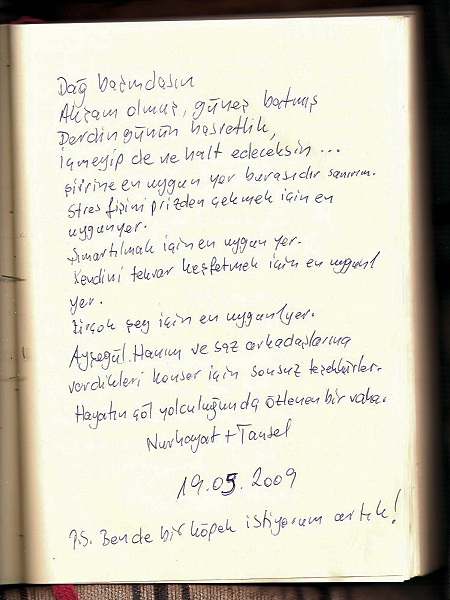 Dağ başındasın
Akşam olmuş, güneş batmış
Derdin günün hasretlik,
İçmeyip de ne halt edeceksin ...
şiirine en uygun yer burasıdır sanırım.
Stres fişini prizden çekmek için en
uygun yer.
Şımartılmak için en uygun yer.
Kendini tekrar keşfetmek için en uygun
yer.
Birçok şey için en uygun yer.
Ayşegül Hanım ve saz arkadaşlarına
verdikleri konser için sonsuz teşekkürler.
Hayatın çöl yolculuğunda özlenen bir vaha.
Nurhayat + Tansel
19.05.2009
P.S. Bende bir köpek istiyorum artık!